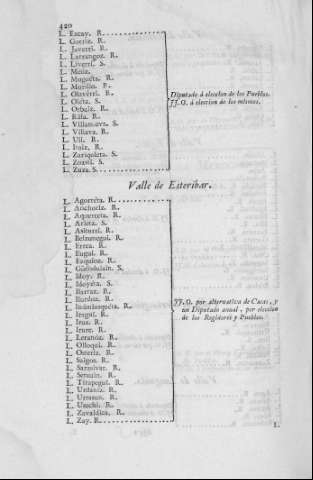 420
L. Escay. R.
L. Gorriz. R.
L. Javerri. R.
L. Larrangoz. R.
L. Liverri. S.
L. Meoz.
L. Mugueta. R.
L. Murillo. P.
L. Olaverri. R.
L. Oleta. S.
L. Orbaiz. R.
L. Rala. R.
L. Villanueva. S.
L. Villava. R.
L. Uli. R.
L. Itoiz. R.
L. Zariquieta. S.
L. Zuza. S.
Diputado á eleccion de los Pueblos.
JJ. O. á eleccion de los mismos.
Valle de Esteribar.
L. Agorreta. R.
L. Anchoriz. R.
L. Aquerreta. R.
L. Arleta. S.
L. Belzunegui. R.
L. Errea. R.
L. Eugui. R.
L. Esquiroz. R.
L. Idoy. R.
L. Idoyeta. S.
L. Ilarraz. R.
L. Ilurdoz. R.
L. Iragui. R.
L. Iroz. R.
L. Irure. R.
L. Leranoz. R.
L. Olloqui. R.
L. Osteriz. R.
L. Saigos. R.
L. Sarasivar. R.
L. Setuain. R.
L. Tirapegui. R.
L. Urdaniz. R.
L. Urtasun. R.
L. Usechi. R.
L. Zavaldica. R.
L. Zay. R.
JJ. O. por alternativa de Casas, y
un Diputado anual, por eleccion
de los Regidores y Pueblos.
L.